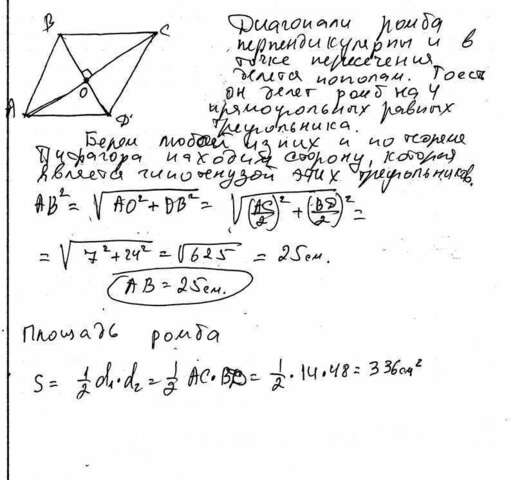 B C
Диагонали ромба
перпендикулярны и в
точке пересечения
делятся пополам. Тоесть
он делет ромб на 4
прямоугольных равных
треугольника.
A O D
Берем любой из них и по теореме
Пифагора находим сторону, которая
является гипотенузой этих треугольников.
AB² = √(AO² + OB²) = √((AC/2)² + (BD/2)²) =
= √(7² + 24²) = √625 = 25см.
AB = 25см.
Площадь ромба
S = 1/2 d₁·d₂ = 1/2 AC·BD = 1/2 · 14 · 48 = 336см²